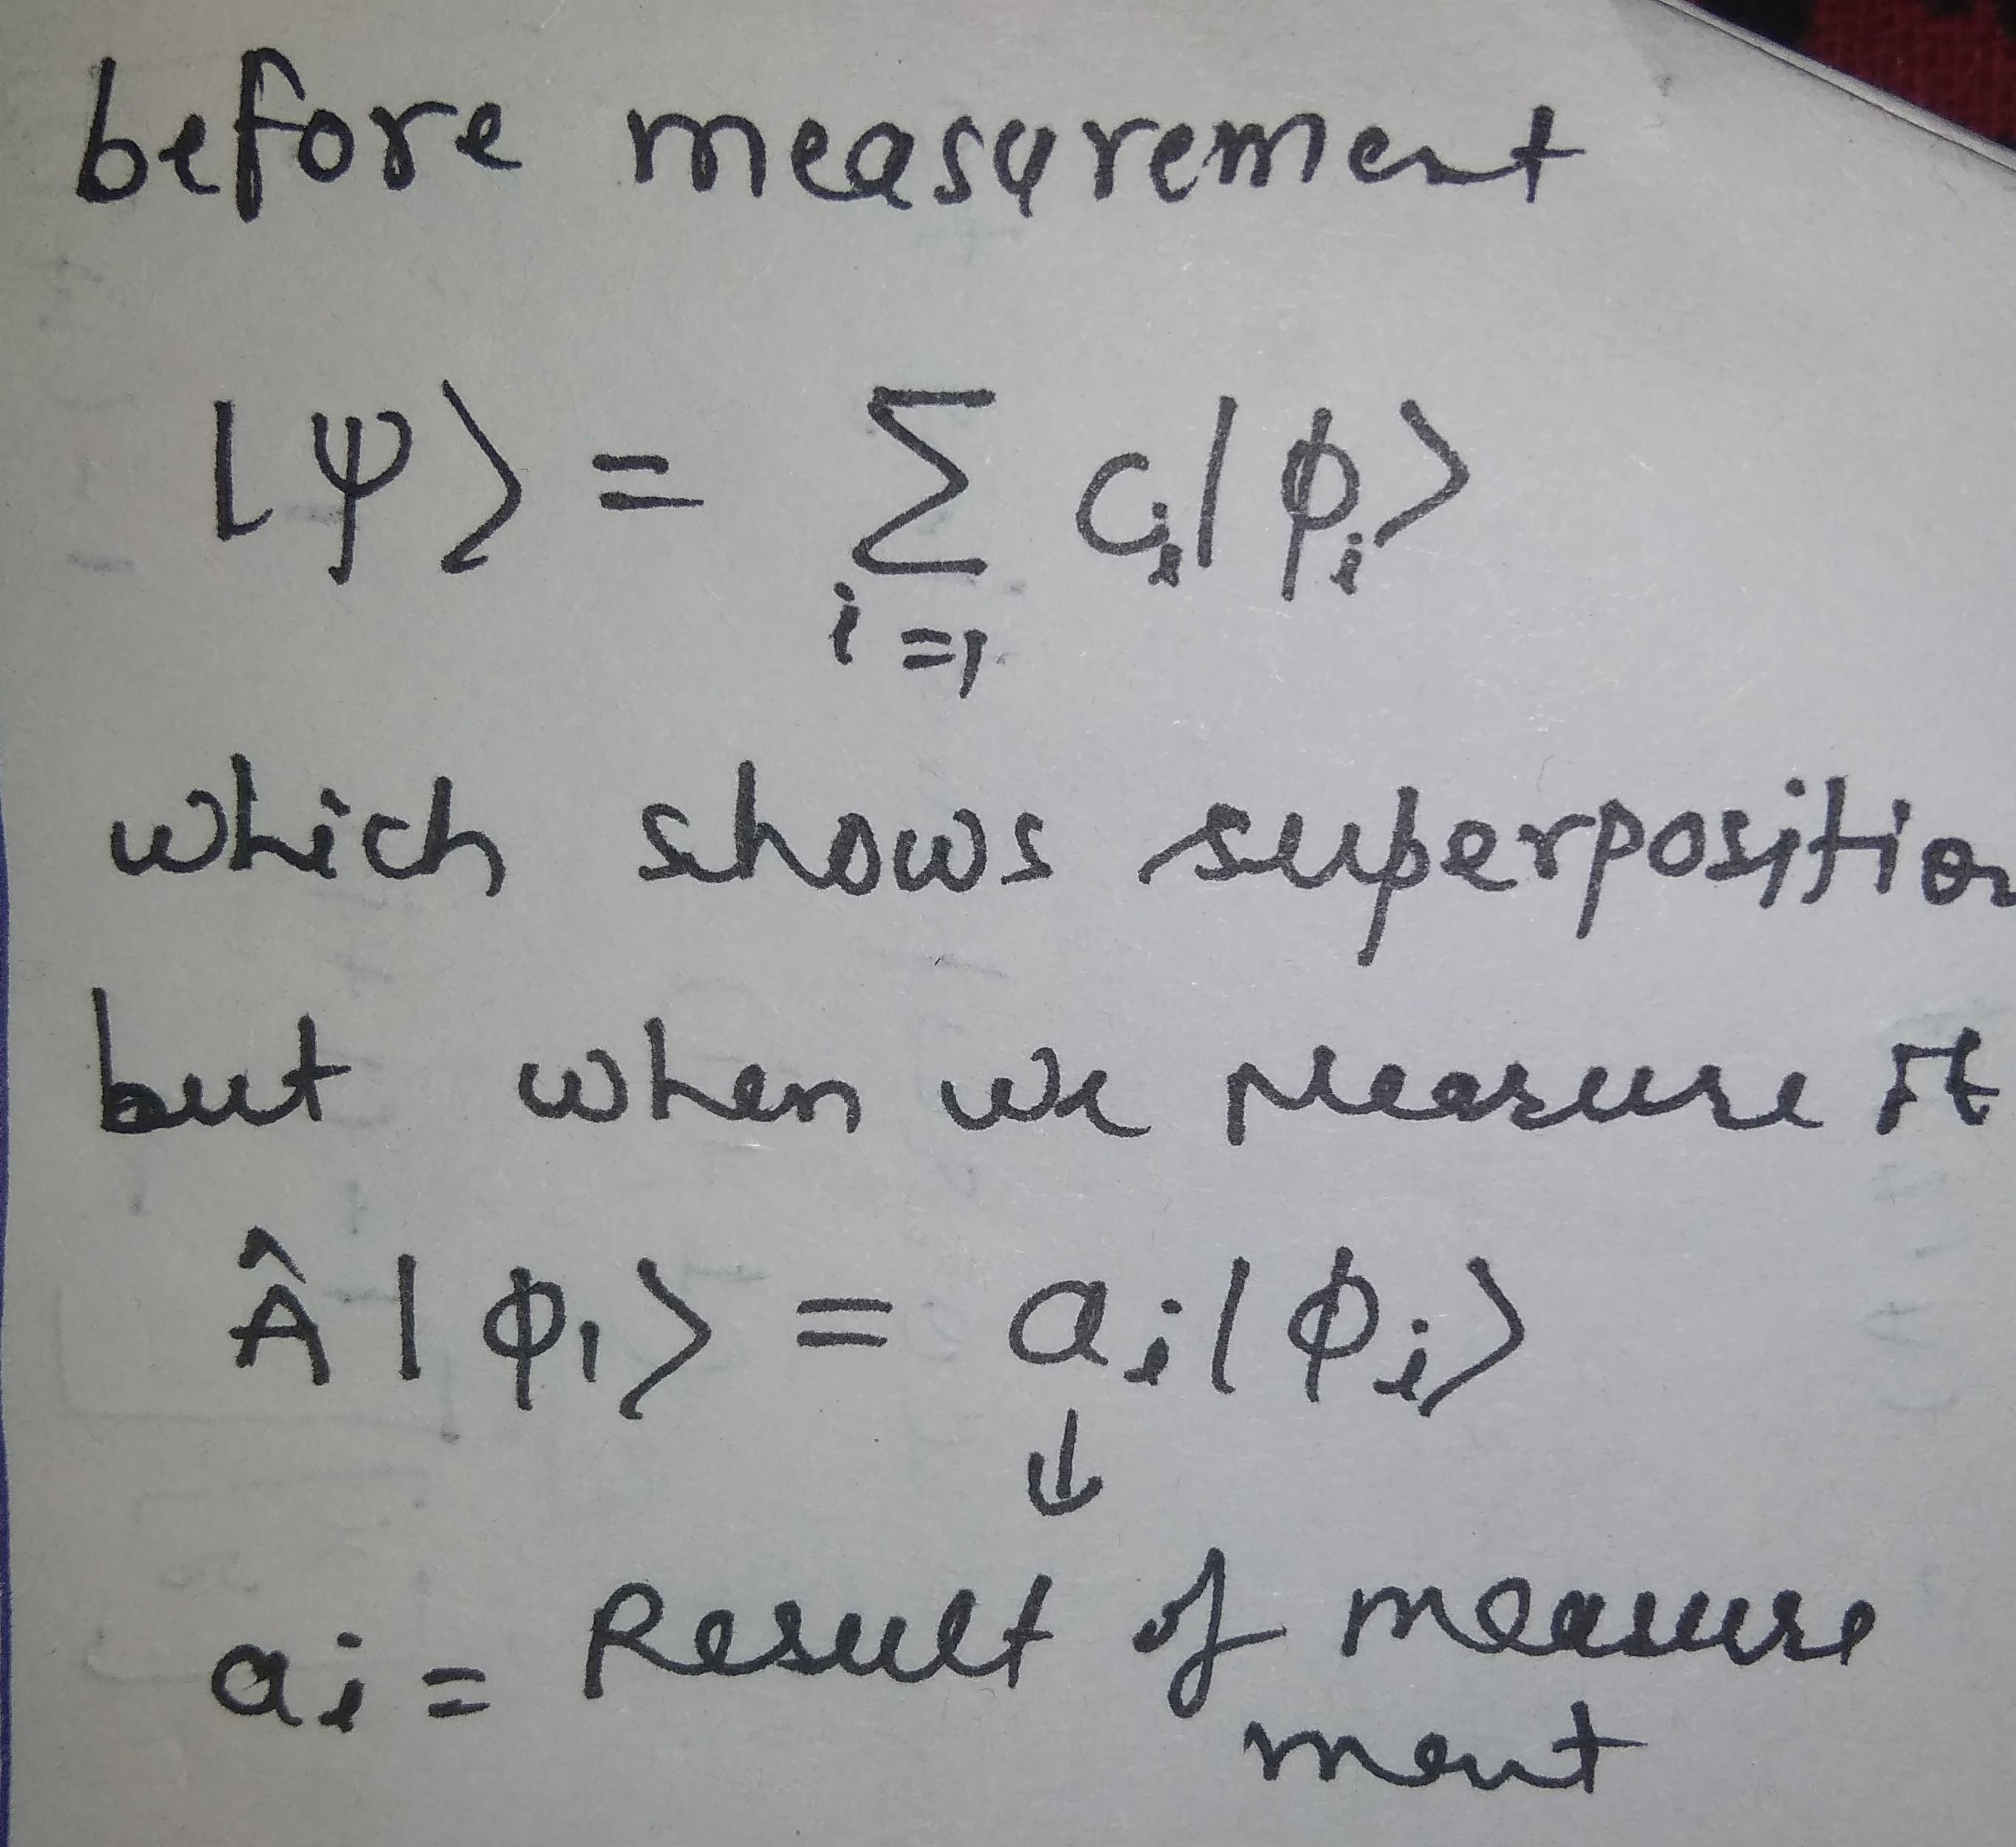 before measurement
|ψ⟩ = ∑ cᵢ|ϕᵢ⟩
i=1
which shows superposition
but when we measure it
Â|ϕ₁⟩ = aᵢ|ϕᵢ⟩
↓
aᵢ = Result of measure
ment